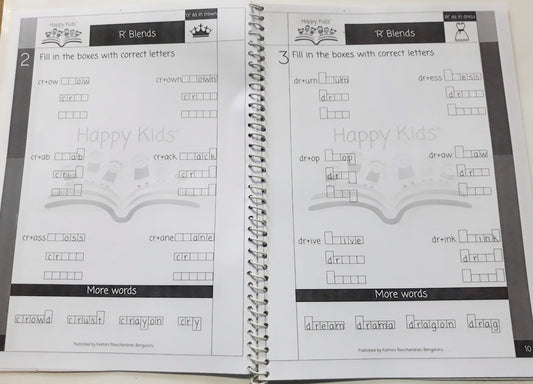 'cr' as in crown
Happy Kids
'R' Blends
2 Fill in the boxes with correct letters
cr+ow ow cr+own own
cr cr
cr+ab ab cr+ack ack
cr cr
Happy Kids
cr+oss oss cr+ane ane
cr cr
More words
crowd crust crayon cry
Published by Kamini Ravichandran, Bengaluru.
'dr' as in dress
Happy Kids
'R' Blends
3 Fill in the boxes with correct letters
dr+um um dr+ess ess
dr dr
dr+op op dr+aw aw
dr dr
Happy Kids
dr+ive ive dr+ink ink
dr dr
More words
dream drama dragon drag
Published by Kamini Ravichandran, Bengaluru.
10